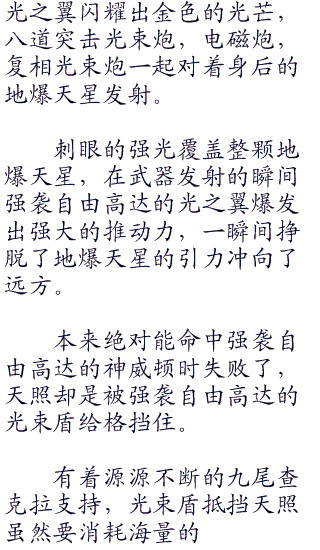 光之翼闪耀出金色的光芒，
八道突击光束炮，电磁炮，
复相光束炮一起对着身后的
地爆天星发射。
刺眼的强光覆盖整颗地
爆天星，在武器发射的瞬间
强袭自由高达的光之翼爆发
出强大的推动力，一瞬间挣
脱了地爆天星的引力冲向了
远方。
本来绝对能命中强袭自
由高达的神威顿时失败了，
天照却是被强袭自由高达的
光束盾给格挡住。
有着源源不断的九尾查
克拉支持，光束盾抵挡天照
虽然要消耗海量的